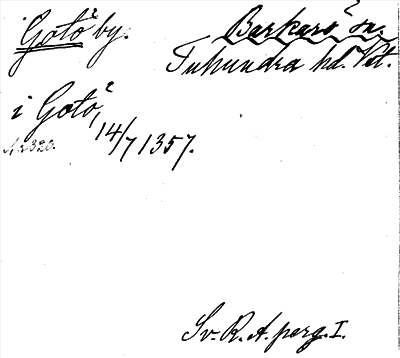 Gotö by.
Barkarö sn.
Tuhundra hd. Vst.
i Gotö,
14/7 1357.
N 2320.
Sv. R. A. perg. I.